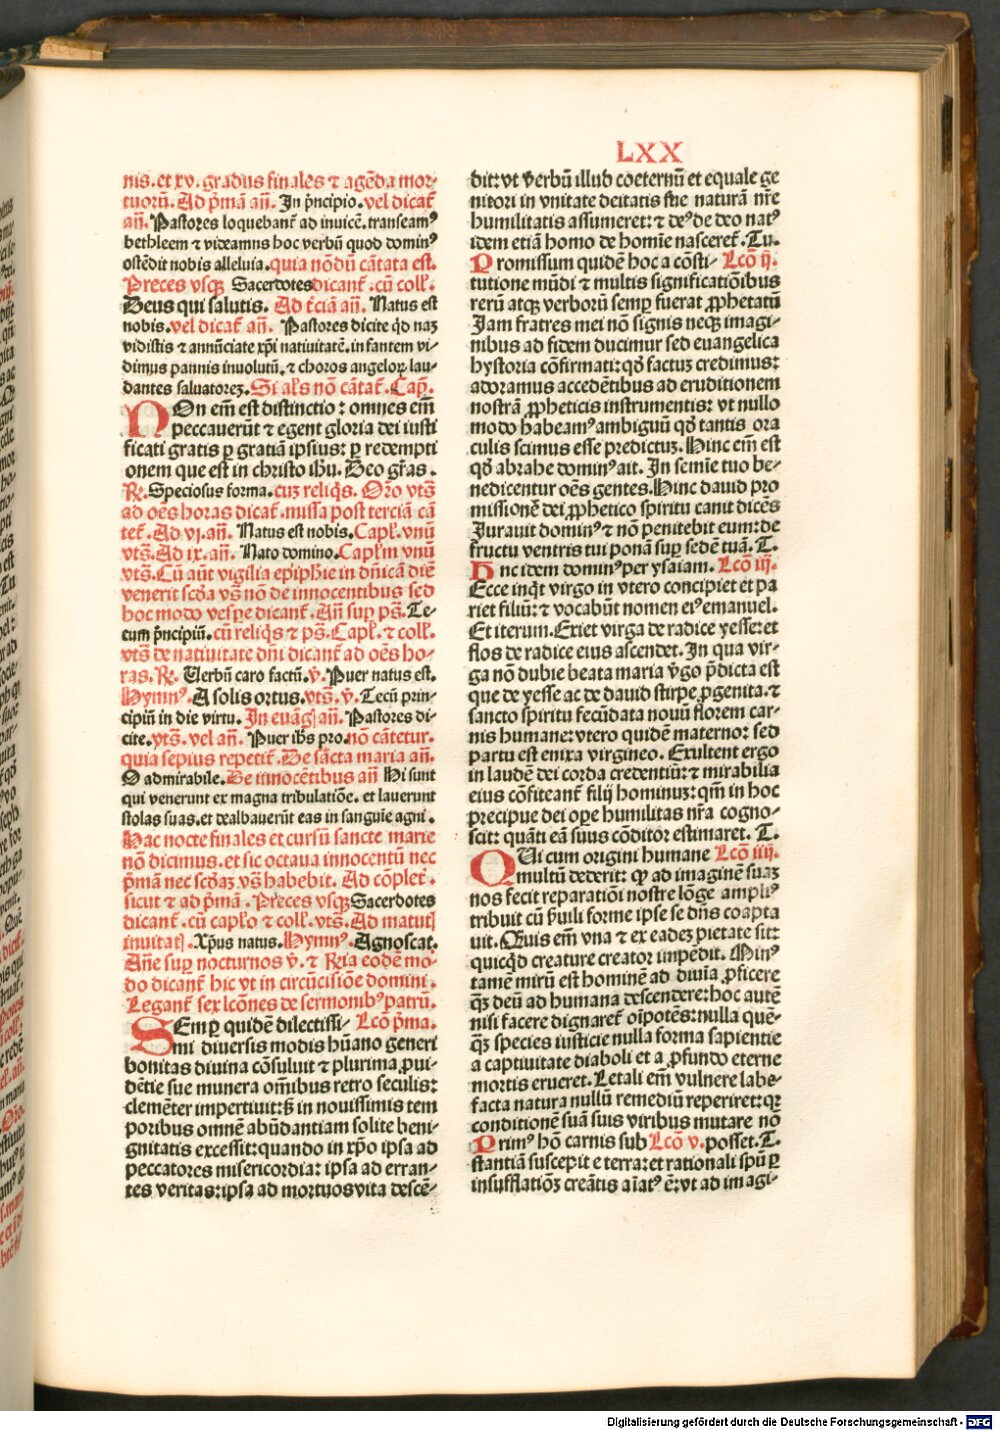 LXX
nis. et xv. gradus finales ⁊ agēda mor-
tuorū. Ad p̄mā añ. In p̄ncipio. vel dicat̄
añ. Pastores loquebant̄ ad inuicē. transeamꝰ
bethleem ⁊ videamus hoc verbū quod dominꝰ
ostēdit nobis alleluia. quia nōdū cātata est.
Preces vsqꝫ Sacerdotes dicant̄. cū coll̄.
Deus qui salutis. Ad t̄ciā añ. Natus est
nobis. vel dicat̄ añ. Pastores dicite qd̄ naꝫ
vidistis ⁊ annūciate xp̄i natiuitatē. infantem vi-
dimus pannis inuolutū. ⁊ choros angeloꝝ lau-
dantes saluatoreꝫ. Si al̄s nō cātat̄. Cap̄.
NOn em̄ est distinctio: omnes em̄
peccauerūt ⁊ egent gloria dei iusti
ficati gratis ꝑ gratiā ipsius: ꝑ redempti
onem que est in christo ihu. Deo gr̄as.
R̄. Speciosus forma. cuꝫ reliq̄s. Or̄o vts̄
ad oēs horas dicat̄. missa post terciā cā
tet̄. Ad vj. añ. Natus est nobis. Capl̄. vnū
vts̄. Ad ix. añ. Nato domino. Capl̄m vnū
vts̄. Cū aūt vigilia ep̄iph̄ie in dn̄icā diē
venerit scd̄a vs̄ nō de innocentibus sed
hoc modo vesꝑe dicant̄. Añ suꝑ ps̄. Te-
cum p̄ncipiū. cū reliq̄s ⁊ ps̄. Capl̄. ⁊ coll̄.
vts̄ de natiuitate dn̄i dicant̄ ad oēs ho-
ras. R̄. Verbū caro factū. v̄. Puer natus est.
Hymnꝰ. A solis ortus. vts̄. v̄. Tecū prin-
cipiū in die virtu. In euāḡ añ. Pastores di-
cite. vts̄. vel añ. Puer ihs̄ pro. nō cātetur.
quia sepius repetit̄. De sācta maria añ.
O admirabile. De innocētibus añ Hi sunt
qui venerunt ex magna tribulatiōe. et lauerunt
stolas suas. et dealbauerūt eas in sanguīe agni.
Hac nocte finales et cursū sancte marie
nō dicimus. et sic octaua innocentū nec
p̄mā nec scd̄aꝫ vs̄ habebit. Ad cōplet̄.
sicut ⁊ ad p̄mā. Preces vsqꝫ Sacerdotes
dicant̄. cū capl̄o ⁊ coll̄. vts̄. Ad matut̄
inuitat̄. Xp̄us natus. Hymnꝰ. Agnoscat.
Añe suꝑ nocturnos v̄. ⁊ R̄ia eodē mo-
do dicant̄ hic vt in circūcisiōe domini.
Legant̄ sex lcōnes de sermonibꝰ patrū.
SEmꝑ quidē dilectissi- Lcō p̄ma.
mi diuersis modis hūano generi
bonitas diuina cōsuluit ⁊ plurima ꝓui-
dētie sue munera om̄ibus retro seculis:
clemēter impertiuit: sꝫ in nouissimis tem
poribus omnē abūdantiam solite beni-
gnitatis excessit: quando in xp̄o ipsa ad
peccatores misericordia: ipsa ad erran-
tes veritas: ipsa ad mortuos vita descē-
dit: vt verbū illud coeternū et equale ge
nitori in vnitate deitatis sue naturā nr̄e
humilitatis assumeret: ⁊ deꝰ de deo natꝰ
idem etiā homo de homīe nasceret̄. Tu.
Promissum quidē hoc a cōsti- Lcō ij.
tutione mūdi ⁊ multis significatiōibus
rerū atqꝫ verborū semꝑ fuerat ꝓphetatū
Jam fratres mei nō signis neqꝫ imagi-
nibus ad fidem ducimur sed euangelica
hystoria cōfirmati: qd̄ factuꝫ credimus:
adoramus accedētibus ad eruditionem
nostrā ꝓpheticis instrumentis: vt nullo
modo habeamꝰ ambiguū qd̄ tantis ora
culis scimus esse predictuꝫ. Hinc em̄ est
qd̄ abrahe dominꝰ ait. In semīe tuo be-
nedicentur oēs gentes. Hinc dauid pro
missionē dei ꝓphetico spiritu canit dicēs
Jurauit dominꝰ ⁊ nō penitebit eum: de
fructu ventris tui ponā suꝑ sedē tuā. T.
Hinc idem dominꝰ per ysaiam. Lcō iij.
Ecce inqt̄ virgo in vtero concipiet et pa
riet filiū: ⁊ vocabūt nomen eiꝰ emanuel.
Et iterum. Exiet virga de radice yesse: et
flos de radice eius ascendet. In qua vir-
ga nō dubie beata maria v̄go p̄dicta est
que de yesse ac de dauid stirpe ꝓgenita. ⁊
sancto spiritu fecūdata nouū florem car-
nis humane: vtero quidē materno: sed
partu est enixa virgineo. Exultent ergo
in laudē dei corda credentiū: ⁊ mirabilia
eius cōfiteant̄ filij hominuꝫ: qm̄ in hoc
precipue dei ope humilitas nr̄a cogno-
scit: quāti eā suus cōditor estimaret. T.
QUi cum origini humane Lcō iiij.
multū dederit: qꝫ ad imaginē suaꝫ
nos fecit reparatiōi nostre lōge ampliꝰ
tribuit cū ẜuili forme ipse se dn̄s coapta
uit. Quis em̄ vna ⁊ ex eadeꝫ pietate sit:
quicqd̄ creature creator impēdit. Minꝰ
tamē mirū est hominē ad diuīa ꝓficere
qꝫ deū ad humana descendere: hoc autē
nisi facere dignaret̄ oīpotēs: nulla quē-
qꝫ species iusticie nulla forma sapientie
a captiuitate diaboli et a ꝓfundo eterne
mortis erueret. Letali em̄ vulnere labe-
facta natura nullū remediū reperiret: qꝛ
conditionē suā suis viribus mutare nō
Primꝰ hō carnis sub Lcō v. posset. T.
stantiā suscepit e terra: et rationali spū ꝑ
insufflatiōꝫ creātis aīatꝰ ē: vt ad imagi-
Digitalisierung gefördert durch die Deutsche Forschungsgemeinschaft - DFG